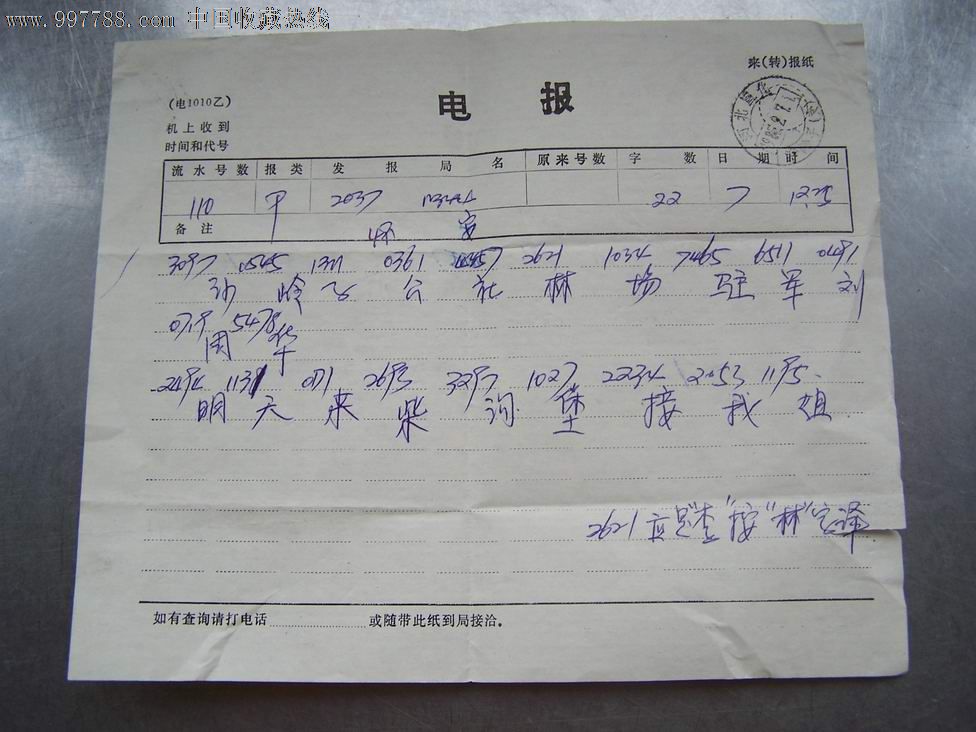 www.997788.com 中国收藏热线
来(转)报纸
(电1010乙)
电 报
机上收到
时间和代号
流水号数 报类 发报局名 原来号数 字数 日期 时间
110 2037 22 7 1225
备注 怀安
3097 0545 1321 0361 4357 2621 1034 7465 6511 0491
沙岭子公社林场驻军刘
0719 5478
国华
2494 1131 0171 2693 3297 1027 2234 2053 1195
明天来柴沟堡接我姐
2621应是"查"按"林"字译
如有查询请打电话 或随带此纸到局接洽。